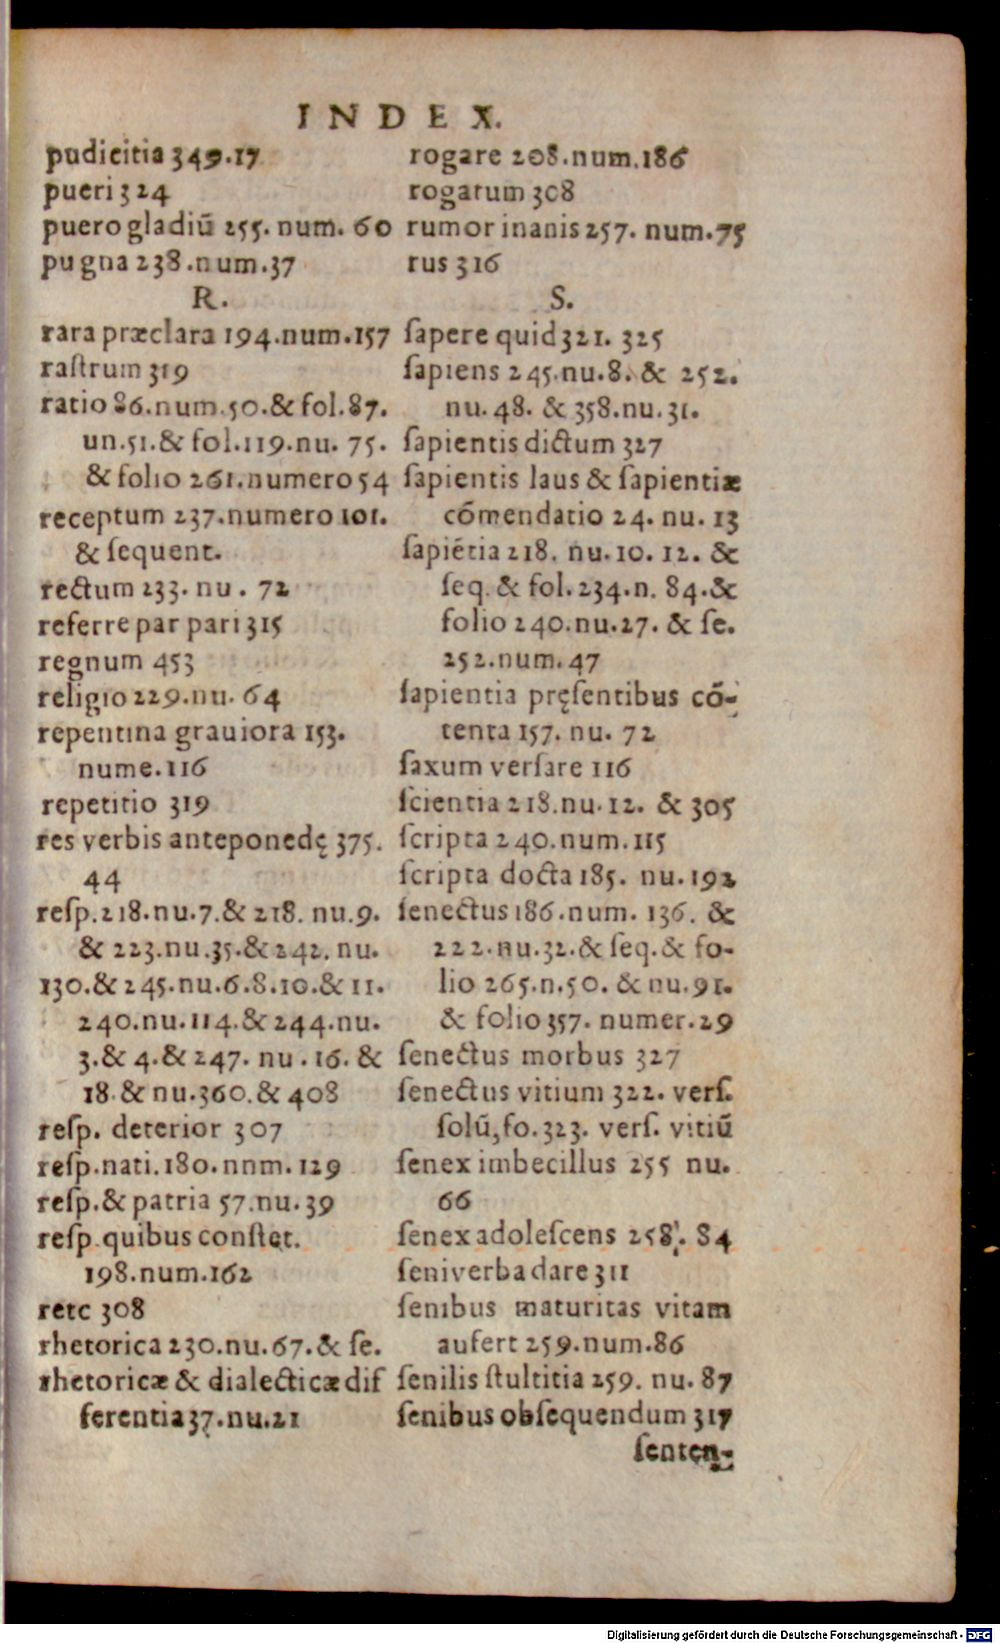 INDEX.
pudicitia 349.17
pueri 324
puero gladiū 255. num. 60
pugna 238.num.37
R.
rara præclara 194.num.157
raſtrum 319
ratio 86.num.50.& fol.87.
un.51.& fol.119.nu. 75.
& folio 261.numero 54
receptum 237.numero 101.
& ſequent.
rectum 233. nu. 72
referre par pari 315
regnum 453
religio 229.nu. 64
repentina grauiora 153.
nume.116
repetitio 319
res verbis anteponedę 375.
44
reſp.218.nu.7.& 218. nu.9.
& 223.nu.35.& 242. nu.
130.& 245.nu.6.8.10.& 11.
240.nu.114.& 244.nu.
3.& 4.& 247. nu. 16. &
18.& nu.360.& 408
reſp. deterior 307
reſp.nati.180.nnm.129
reſp.& patria 57.nu.39
reſp.quibus conſtet.
198.num.162
rete 308
rhetorica 230.nu.67.& ſe.
rhetoricæ & dialecticæ dif
ferentia 37.nu.21
rogare 208.num.186
rogatum 308
rumor inanis 257. num.75
rus 316
S.
ſapere quid 321. 325
ſapiens 245.nu.8. & 252.
nu. 48. & 358.nu. 31.
ſapientis dictum 327
ſapientis laus & ſapientiæ
cōmendatio 24. nu. 13
ſapiētia 218. nu. 10. 12. &
ſeq. & fol. 234.n. 84.&
folio 240.nu.27. & ſe.
252.num. 47
ſapientia pręſentibus cō-
tenta 157. nu. 72
ſaxum verſare 116
ſcientia 218.nu.12. & 305
ſcripta 240.num.115
ſcripta docta 185. nu.192
ſenectus 186.num. 136. &
222.nu.32.& ſeq.& fo-
lio 265.n.50. & nu.91.
& folio 357. numer.29
ſenectus morbus 327
ſenectus vitium 322. verſ.
ſolū, fo.323. verſ. vitiū
ſenex imbecillus 255 nu.
66
ſenex adoleſcens 258. 84
ſeni verba dare 311
ſenibus maturitas vitam
aufert 259.num.86
ſenilis ſtultitia 259. nu. 87
ſenibus obſequendum 317
ſenten-
Digitalisierung gefördert durch die Deutsche Forschungsgemeinschaft - DFG